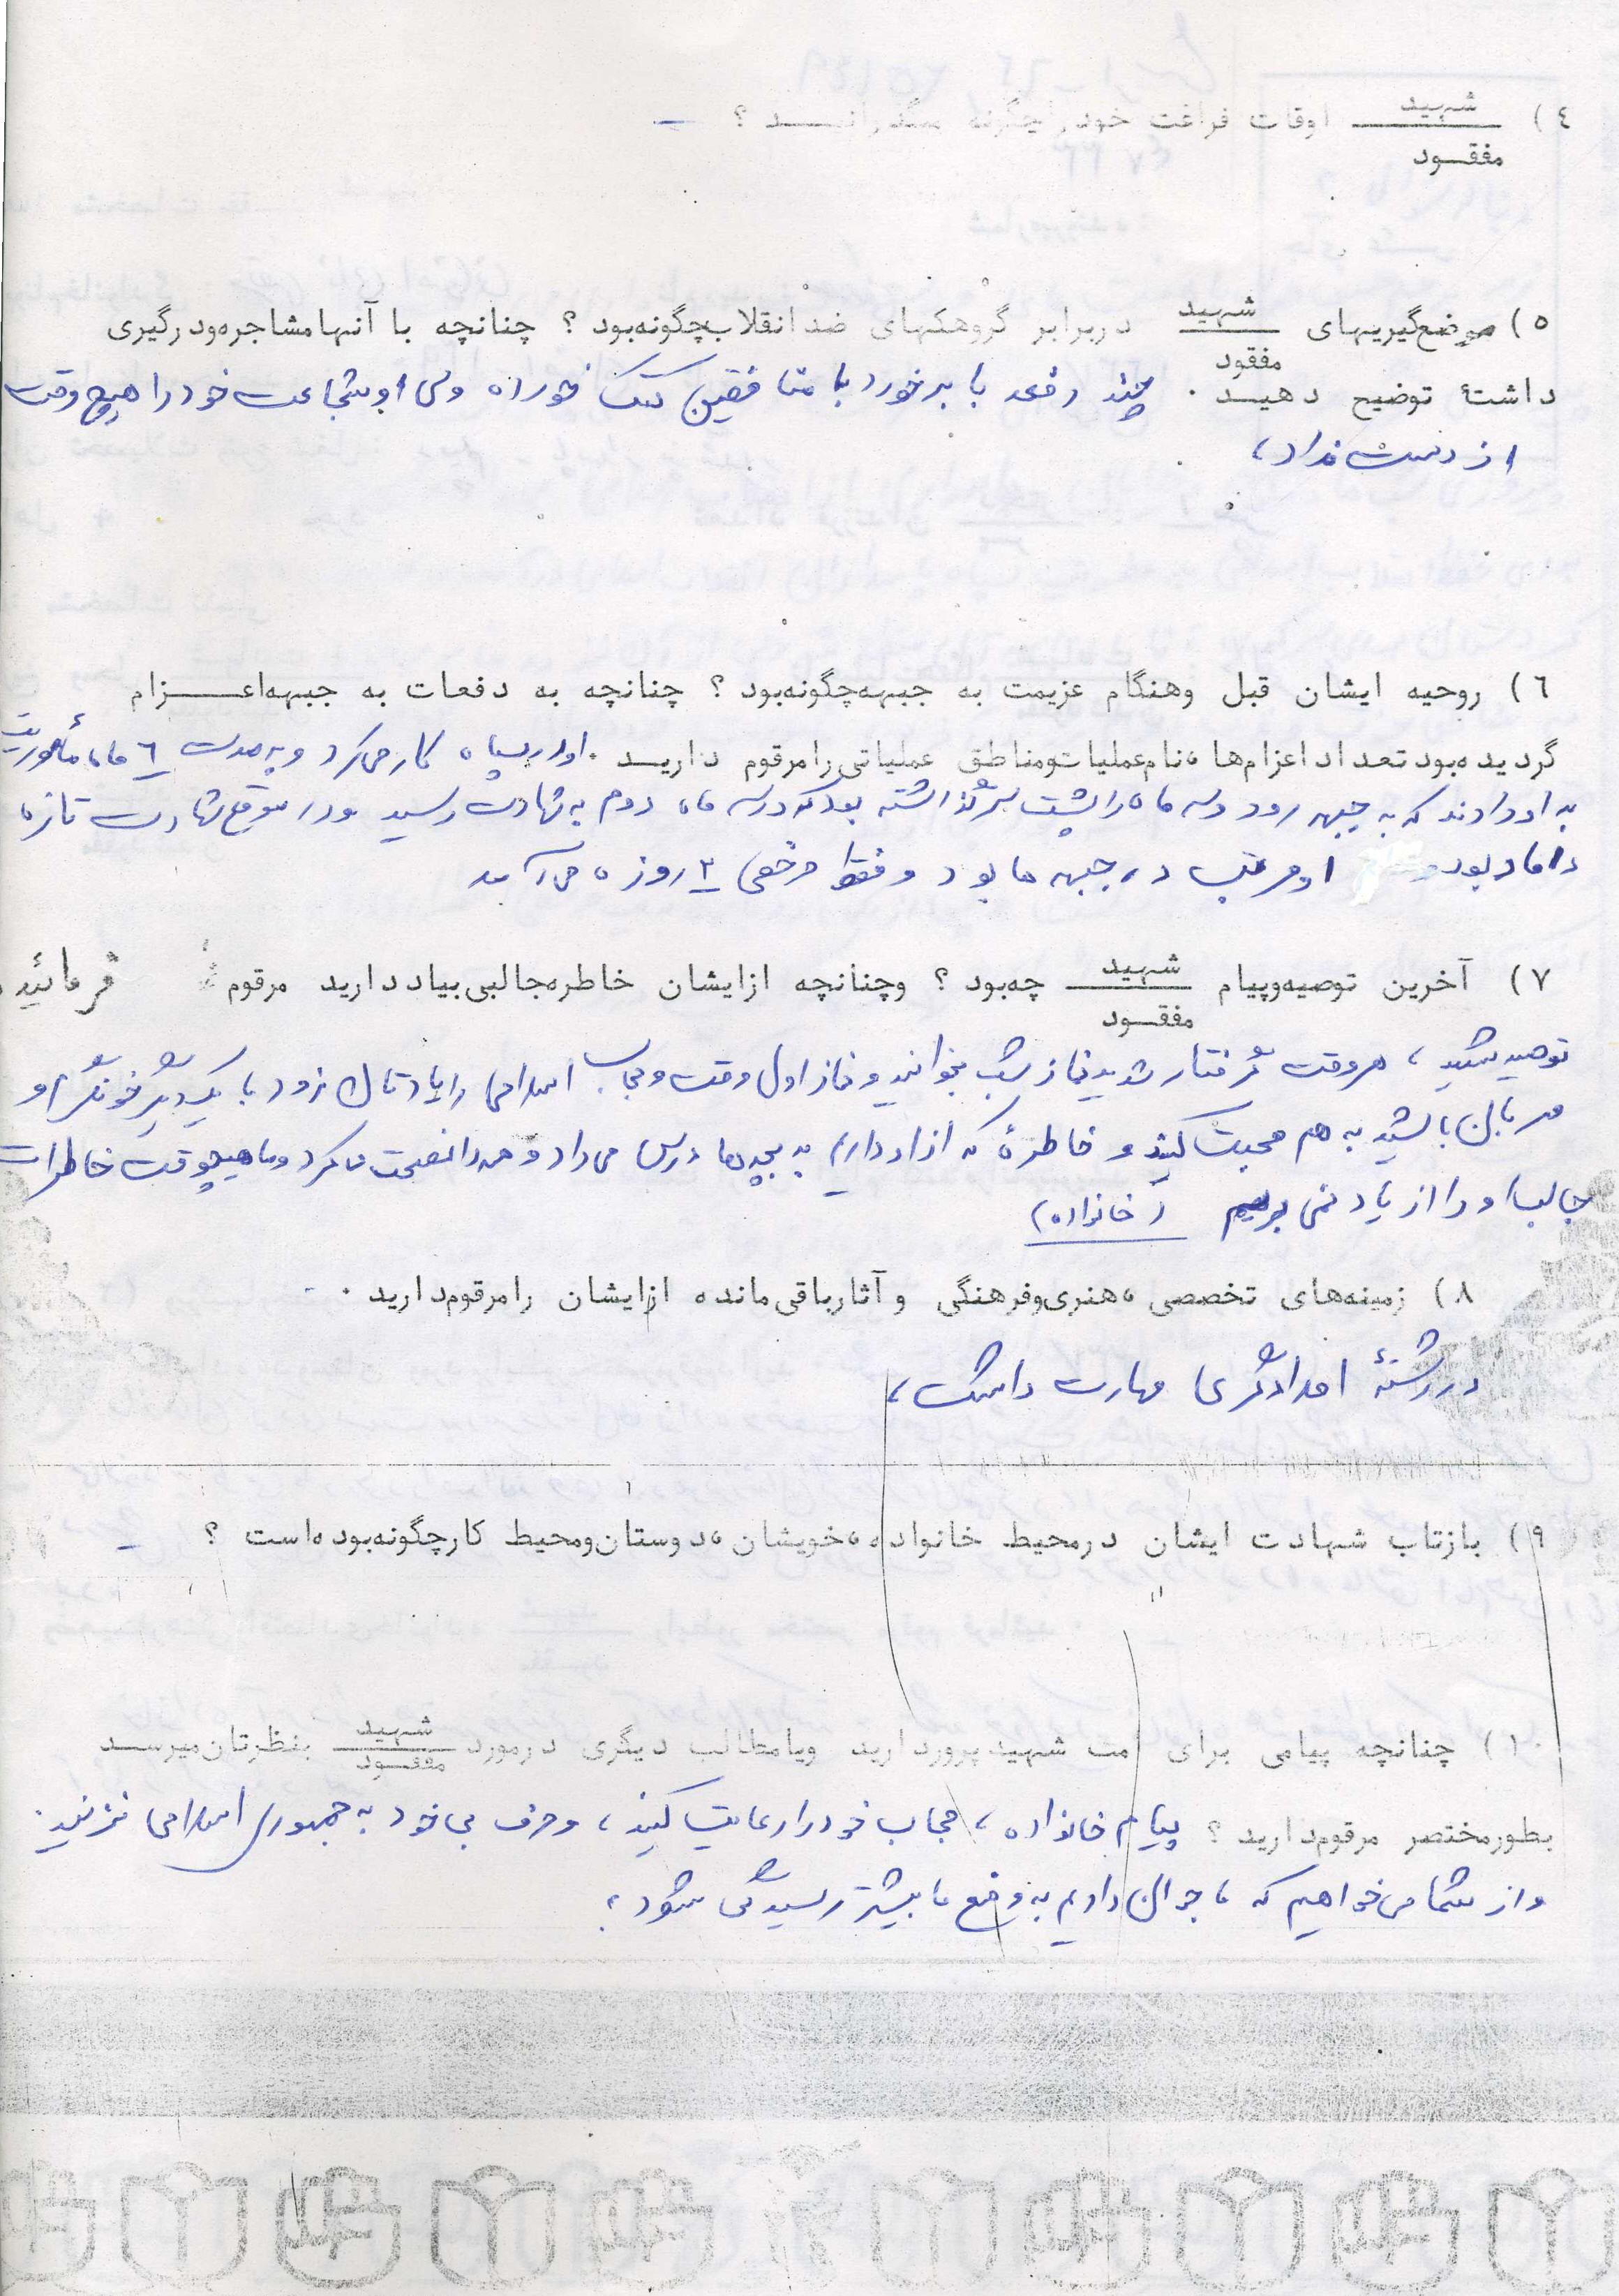 ٤) شهید اوقات فراغت خود را چگونه میگذرانـــد ؟ –
مفقــود
٥) موضع‌گیریهای شهید دربرابر گروهکهای ضد انقلاب چگونه بود ؟ چنانچه با آنها مشاجره ودرگیری
مفقود
داشتهٔ توضیح دهیـد . چند دفعه با برخورد با منافقین کتک خورده ولی او شجاعت خود را هیچ وقت
از دست نداد،
٦) روحیه ایشان قبل وهنگام عزیمت به جبهه چگونه بود ؟ چنانچه به دفعات به جبهه اعـــزام
گردیده بود تعداد اعزام‌ها ، نام عملیات ومناطق عملیاتی را مرقوم داریــد . او در سپاه کار می‌کرد و به مدت ٦ ماه مأموریت
به او دادند که به جبهه رود و سه ماه را پشت سر گذاشته بود که در سه ماه دوم به شهادت رسید و در موقع شهادت تازه
داماد بود و او مرتب در جبهه ها بود و فقط مرخصی ٢ روزه می آمد
٧) آخرین توصیه وپیام شهید چه بود ؟ وچنانچه ازایشان خاطره جالبی بیاد دارید مرقوم فرمائید
مفقــود
توصیه شهید ، هر وقت گرفتار شدید نماز شب بخوانید و نماز اول وقت و حجاب اسلامی را یادتان نرود با یکدیگر خونگرم و
مهربان باشید به هم محبت کنید و خاطرهٔ که از او داریم به بچه‌ها درس می‌داد و همه را نصیحت می کرد و ما هیچوقت خاطرات
جالب او را از یاد نمی بریم (خانواده)
٨) زمینه‌های تخصصی ، هنری وفرهنگی و آثارباقی مانده ازایشان رامرقوم دارید .
در رشتهٔ امدادگری مهارت داشت ،
٩) بازتاب شهادت ایشان درمحیط خانواده ، خویشان ، دوستان ومحیط کارچگونه بوده است ؟ –
١٠) چنانچه پیامی برای امت شهید پروردارید ویامطالب دیگری درمورد شهید بنظرتان میرســد
مفقــود
بطورمختصر مرقوم دارید ؟ پیام خانواده ، حجاب خود را رعایت کنید ، و حرف بی خود به جمهوری اسلامی نزنید.
و از شما می‌خواهیم که ما جوان دادیم به وضع ما بیشتر رسیدگی شود ،